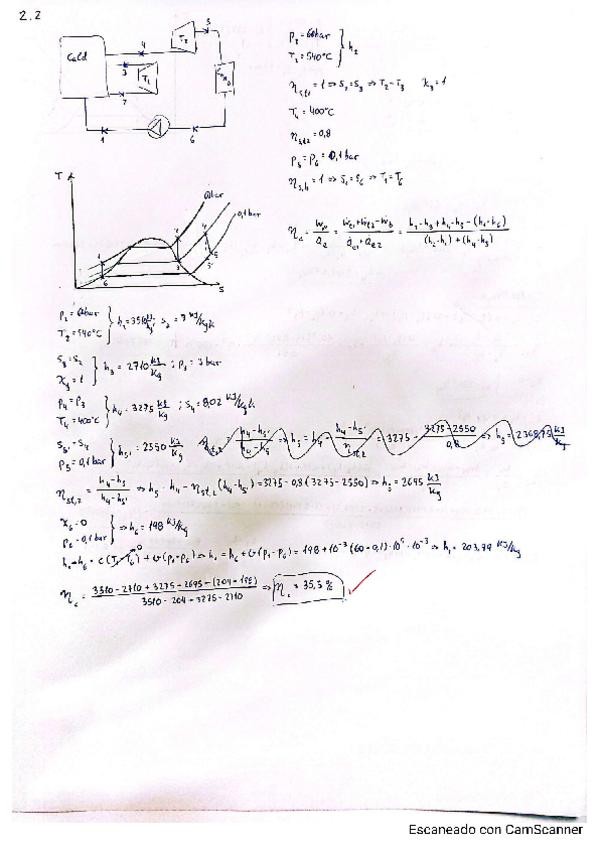 2.2
Cald
T₂
5
4
3
T₁
7
1
6
P₂ = 60bar
T₂ = 540°C } h₂
η_st1 = 1 ⇒ S₂ = S₃ ⇒ T₂-T₃ X₃ = 1
T₄ = 400°C
η_st2 = 0,8
P₅ = P₆ = 0,1 bar
η_s,b = 1 ⇒ S₁ = S₆ ⇒ T₁ = T₆
η_c = Ẇn/Q̇e = (Ẇt1 + Ẇt2 - Ẇb)/(Q̇e1 + Q̇e2) = (h₂-h₃+h₄-h₅-(h₁-h₆))/((h₂-h₁)+(h₄-h₃))
T
60bar
0,1 bar
S
P₂ = 60bar
T₂ = 540°C } h₂ = 3510 kJ/kg ; s₂ = 7 kJ/kgK
S₃ = S₂
X₃ = 1 } h₃ = 2710 kJ/kg ; P₃ = 3 bar
P₄ = P₃
T₄ = 400°C } h₄ = 3275 kJ/kg ; S₄ = 8,02 kJ/kgK
S₅' = S₄
P₅ = 0,1 bar } h₅' = 2550 kJ/kg
η_st,2 = (h₄-h₅)/(h₄-h₅') ⇒ h₅ = h₄ - η_st,2 (h₄-h₅') = 3275 - 0,8 (3275 - 2550) ⇒ h₅ = 2695 kJ/kg
X₆ = 0
P₆ = 0,1 bar } ⇒ h₆ = 198 kJ/kg
h₁-h₆ = c(T₁-T₆)⁰ + v(P₁-P₆) ⇒ h₁ = h₆ + v(P₁-P₆) = 198 + 10⁻³ (60-0,1)·10⁵·10⁻³ ⇒ h₁ = 203,99 kJ/kg
η_c = (3510 - 2710 + 3275 - 2695 - (204 - 198))/(3510 - 204 + 3275 - 2710) ⇒ η_c = 35,5 %
Escaneado con CamScanner